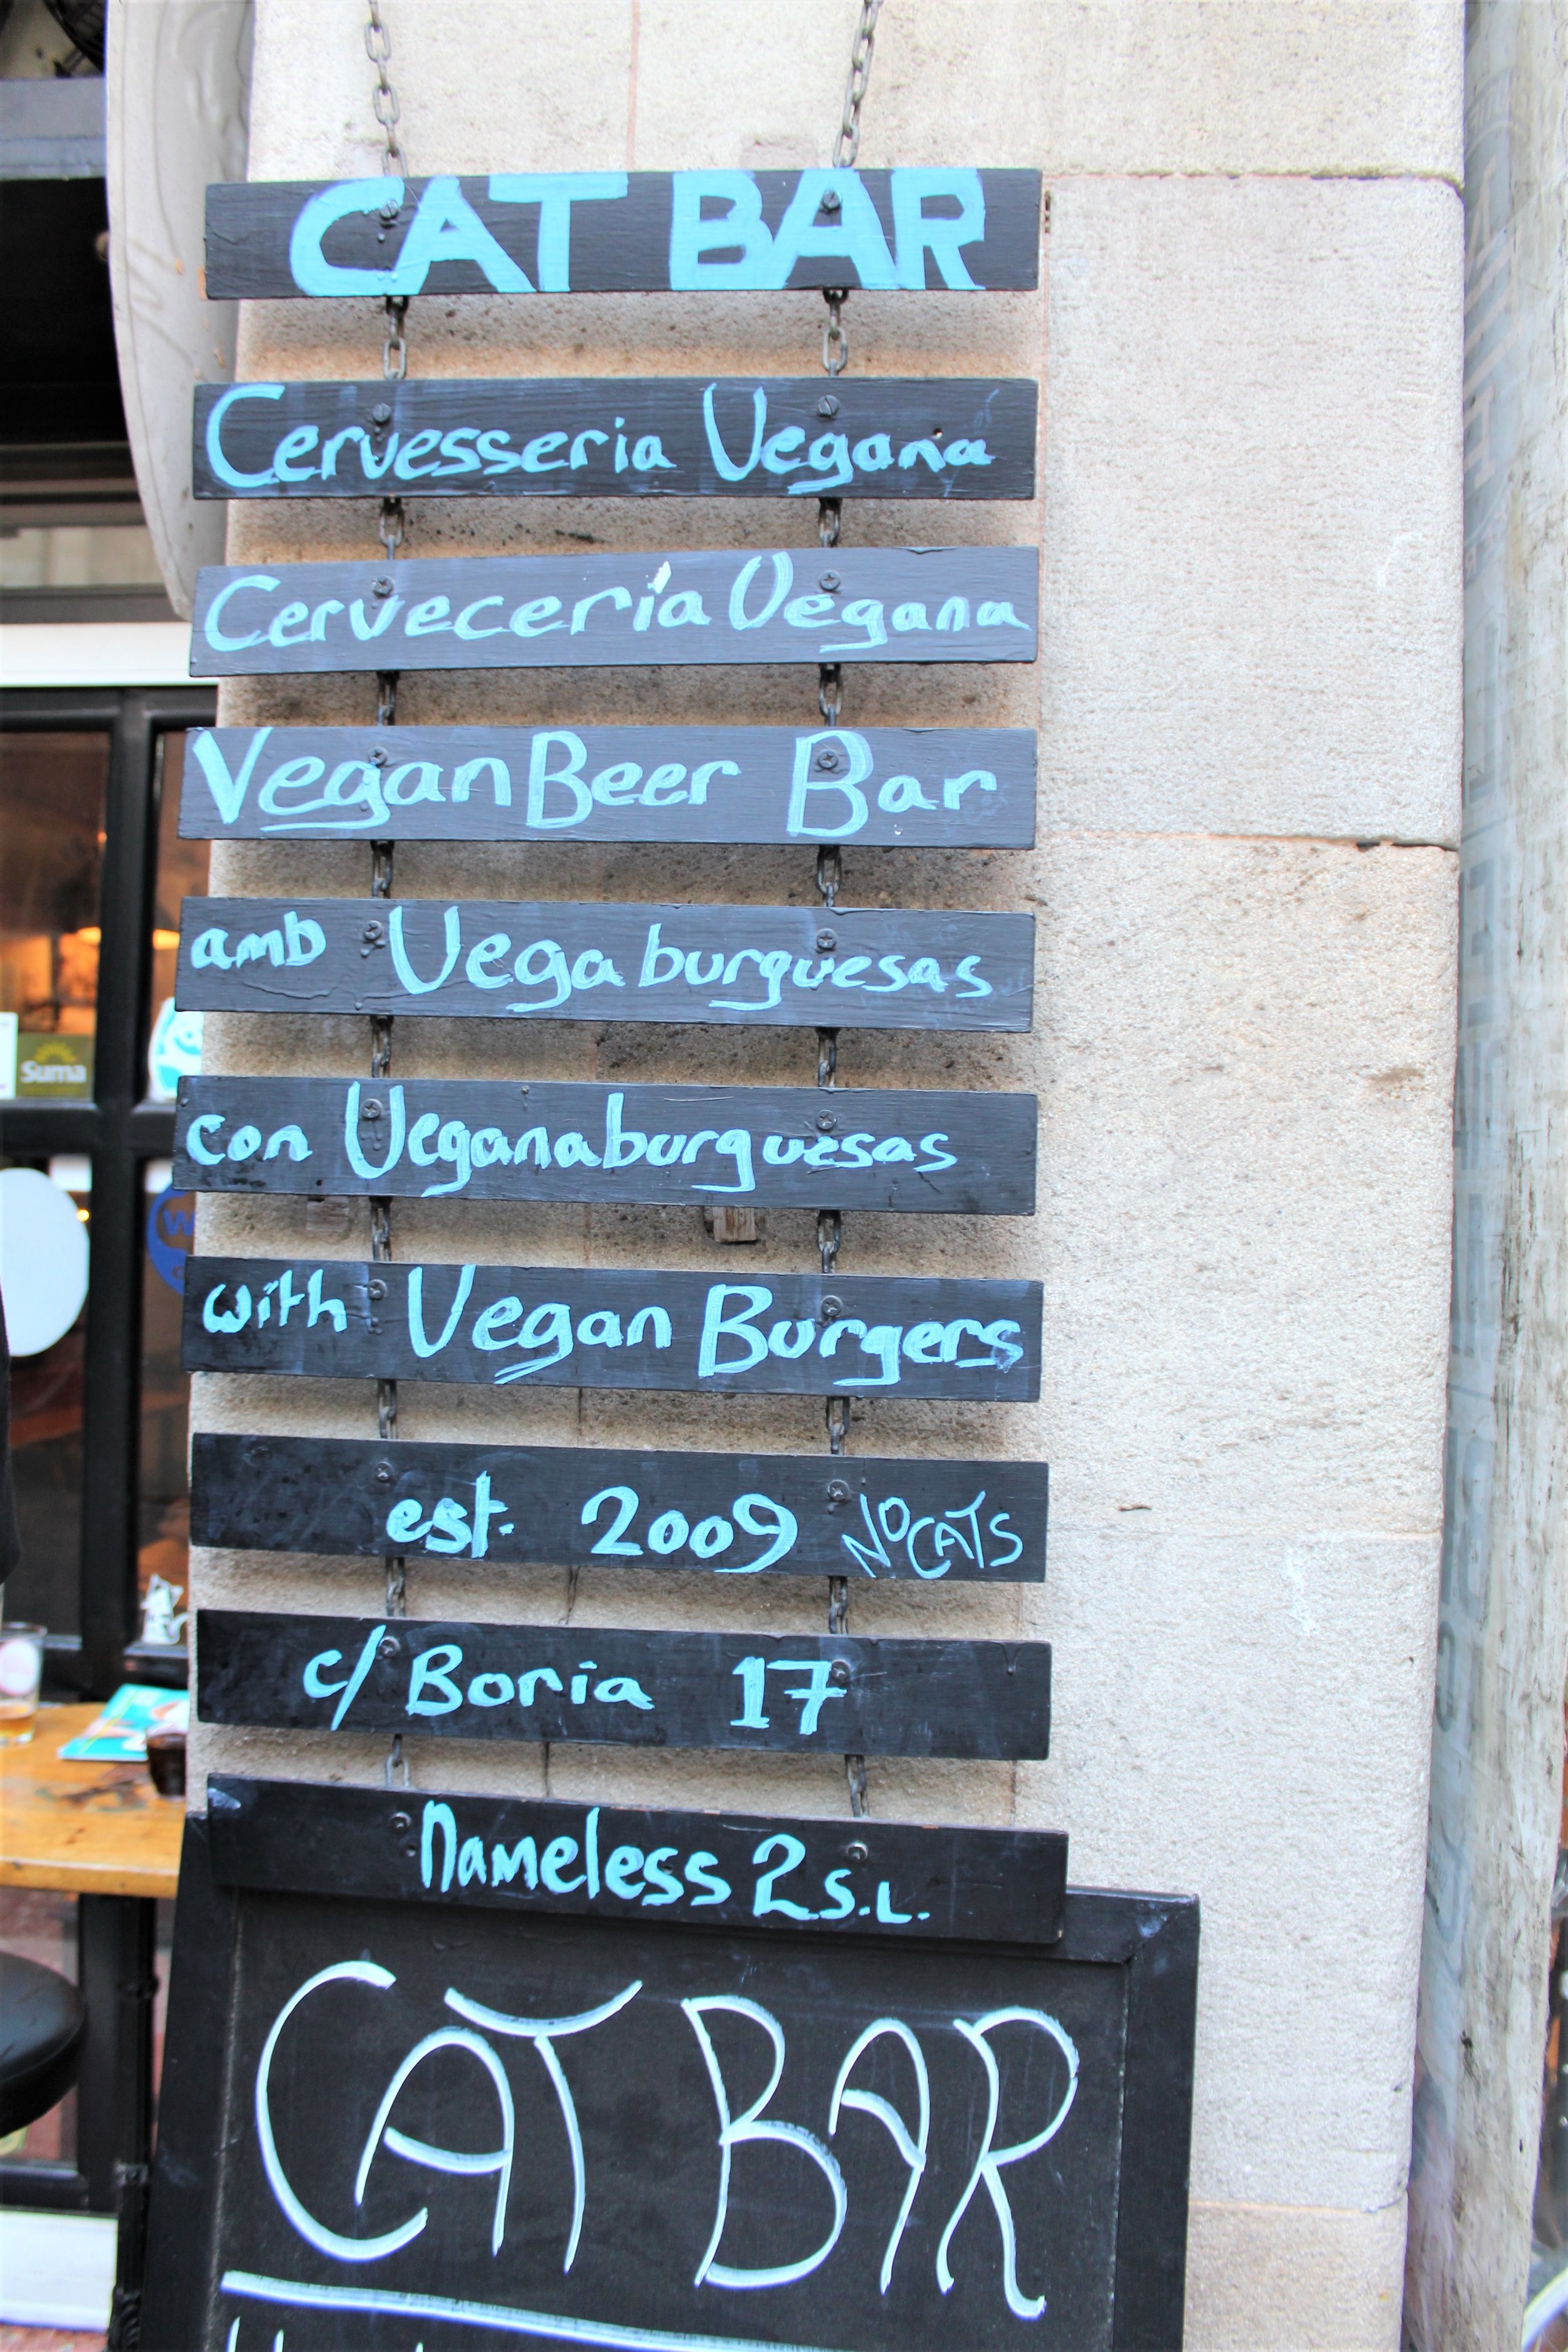 CAT BAR
Cervesseria Vegana
Cervecería Vegana
Vegan Beer Bar
amb Vegaburguesas
con Veganaburguesas
with Vegan Burgers
est. 2009 NO CATS
c/ Boria 17
Nameless 2 S.L.
CAT BAR
Suma